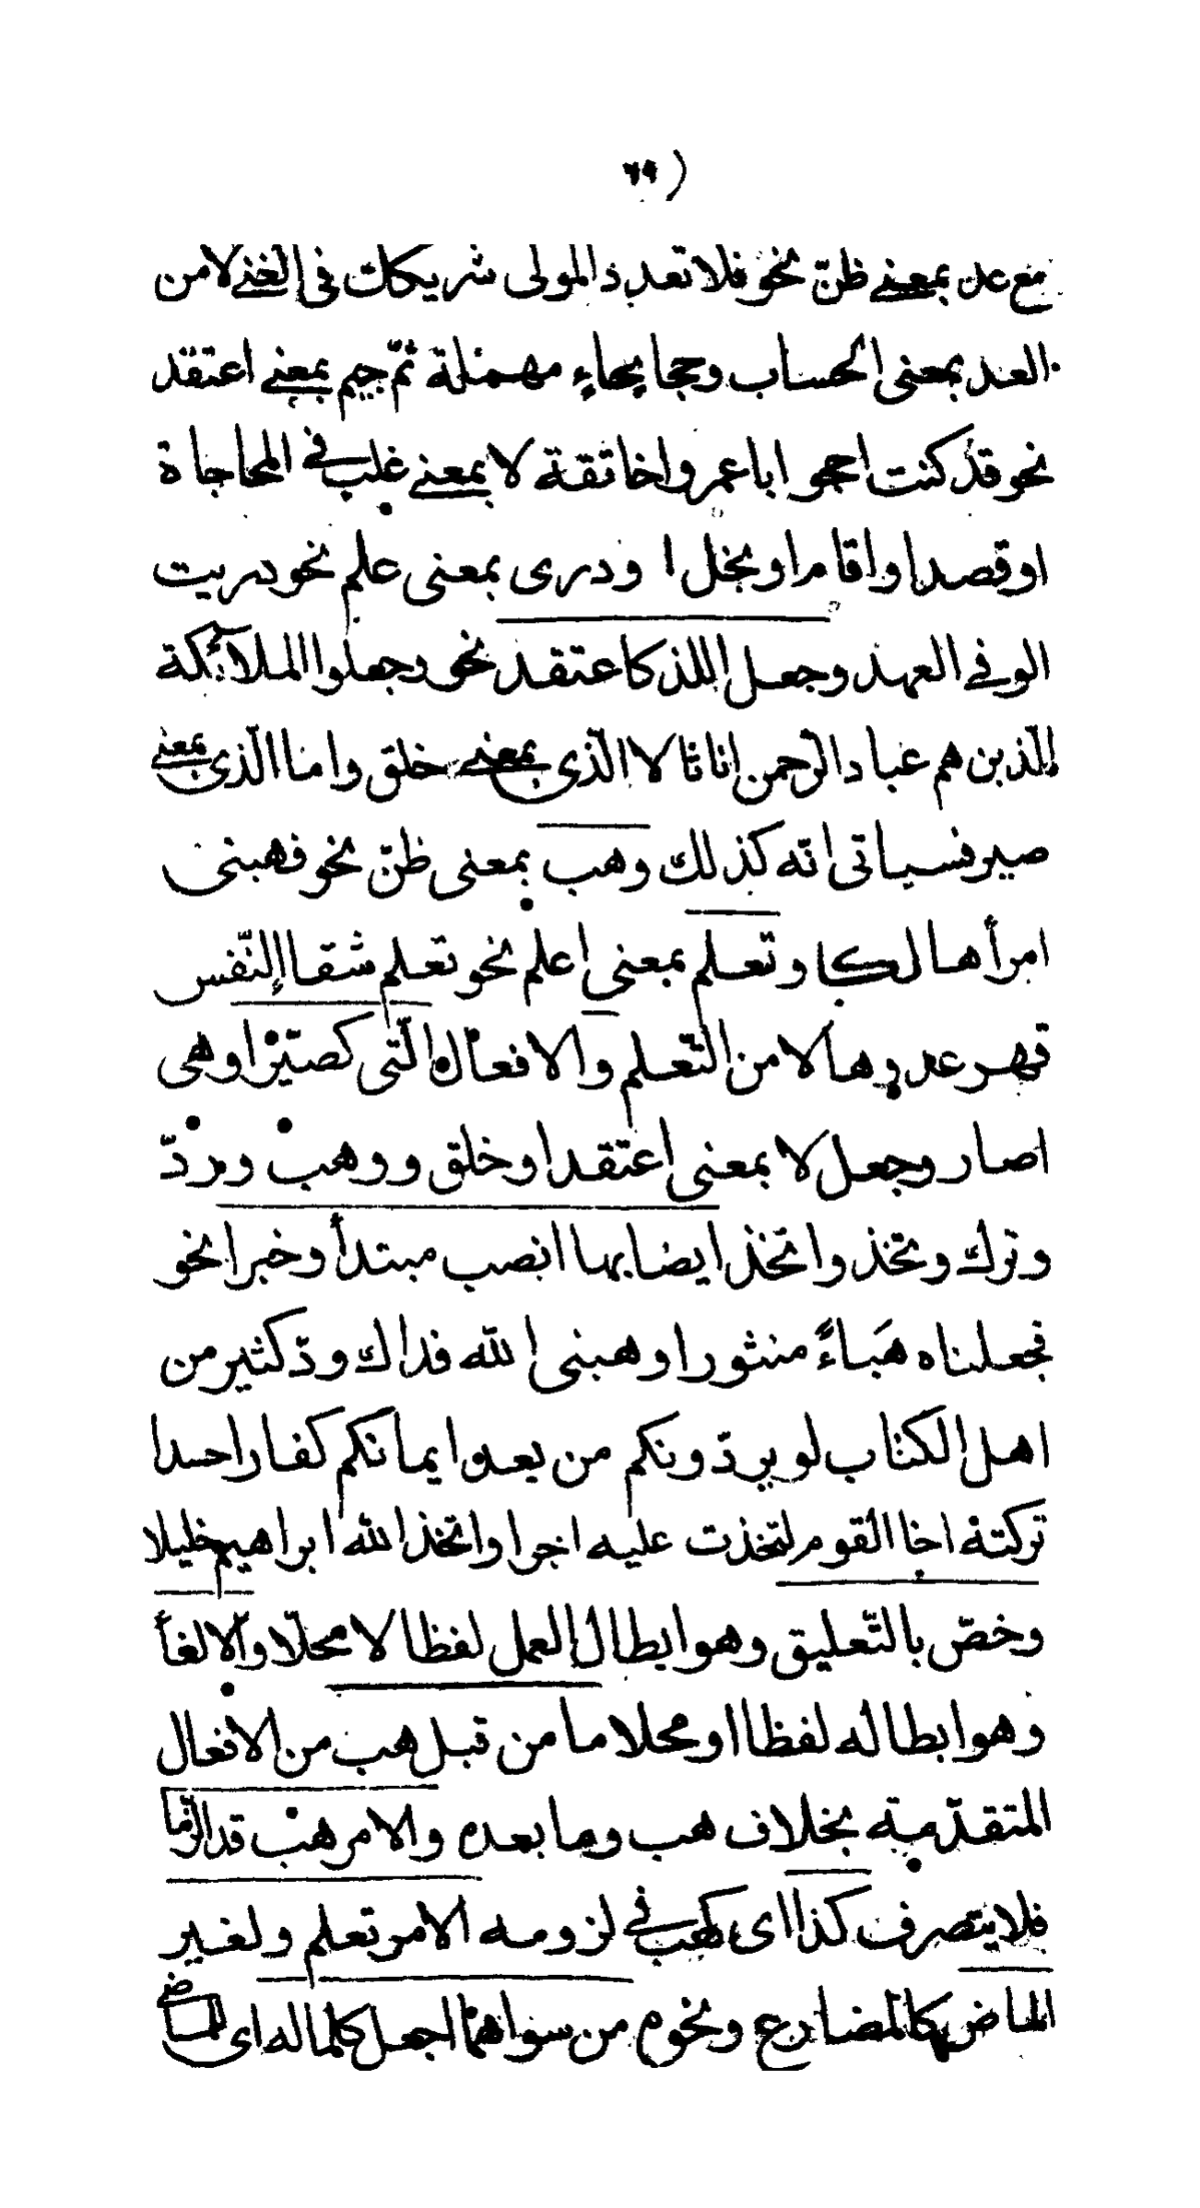 (٦٩
مع عد بمعنے ظنّ نحو فلا تعدد المولى شريكك فى الغنے لا من
العد بمعنى الحساب وحجا بحاءٍ مهملة ثمّ جيم بمعنے اعتقد
نحو قد كنت احجو ابا عمرو اخا ثقة لا بمعنے غلب فے المحاجاة
او قصد او اقام او بخل ا ودرى بمعنى علم نحو دريت
الوفے العهد وجعل اللذ كاعتقد نحو وجعلوا الملآئكة
الّذين هم عباد الرّحمن اناثا لا الّذى بمعنے خلق واما الّذى بمعنے
صير فسياتى انّه كذلك وهب بمعنى ظنّ نحو فهبنى
امرأ هالكا وتعلم بمعنى اعلم نحو تعلم شفاء النّفس
قهر عدوها لا من التّعلم والافعال الّتى كصيّرا وهى
اصار وجعل لا بمعنى اعتقد او خلق ووهب ورَدّ
وترك وتخذ واتخذ ايضا بها انصب مبتدأ وخبرا نحو
فجعلناه هَباءً منثورا وهبنى اللّه فداك ودّ كثير من
اهل الكتاب لو يردّونكم من بعد ايمانكم كفارا حسدا
تركته اخا القوم لتخذت عليه اجرا واتخذ اللّه ابراهيم خليلا
وخصّ بالتّعليق وهو ابطال العمل لفظا لا محلّا والالغأ
وهو ابطاله لفظا او محلا ما من قبل هب من الافعال
المتقدّمة بخلاف هب وما بعده والامر هب قد الزما
فلا يتصرف كذا اى كهب فے لزومه الامر تعلم ولغير
الماض كالمضارع ونحوه من سواهما اجعل كلما له اى للماضے